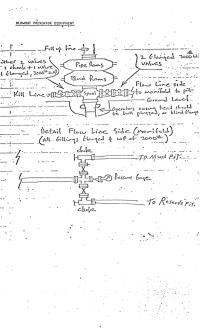 BLOWOUT PREVENTER EQUIPMENT
Fill up line
2 flanged 2000#
valves
Pipe Rams
Blind Rams
2 valves
1 choke + 1 valve
Flow line side
Kill Line
Spool
to manifold to pit
Ground Level
Operators casing head should
be bull plugged, or blind flange
Detail Flow Line Side (manifold)
(All fittings flanged & WP of 2000#)
choke
To Mud PIT.
Pressure Gauge
To Reserve PIT.
choke